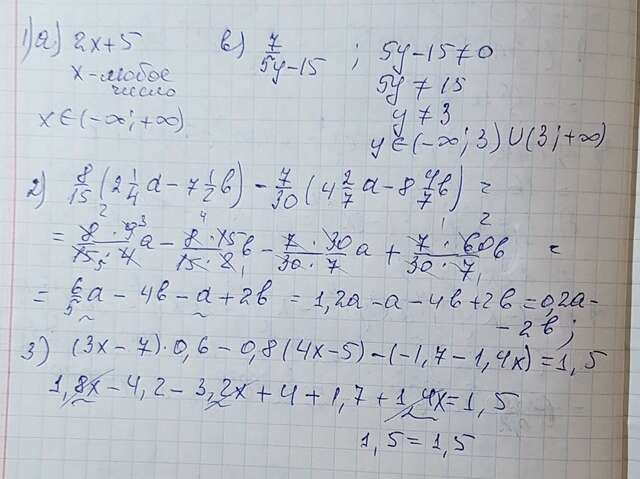 1) а) 2x+5    в) 7/(5y-15) ; 5y-15≠0
x-любое число    5y ≠ 15
x∈(-∞;+∞)    y ≠ 3
y∈(-∞;3)∪(3;+∞)
2) 8/15(2 1/4 a - 7 1/2 b) - 7/30(4 2/7 a - 8 4/7 b) =
= (8·9)/(15·4) a - (8·15)/(15·2) b - (7·30)/(30·7) a + (7·60)/(30·7) b =
= 6/5 a - 4b - a + 2b = 1,2a - a - 4b + 2b = 0,2a -
- 2b;
3) (3x-7)·0,6 - 0,8(4x-5) - (-1,7-1,4x) = 1,5
1,8x - 4,2 - 3,2x + 4 + 1,7 + 1,4x = 1,5
1,5 = 1,5